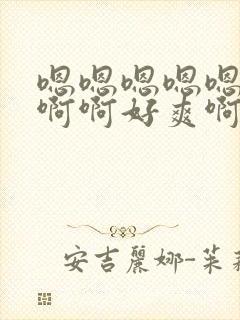 嗯嗯嗯嗯嗯
啊啊好爽啊
安吉麗娜-茱莉